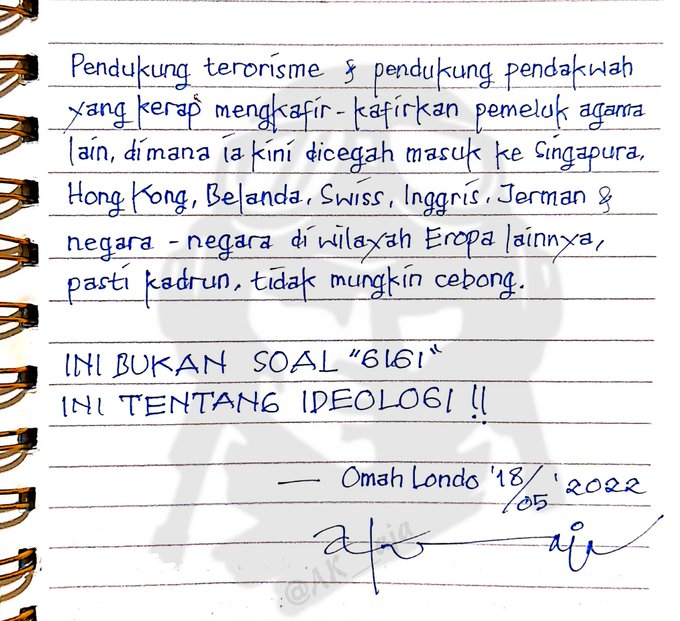 Pendukung terorisme & pendukung pendakwah
yang kerap mengkafir-kafirkan pemeluk agama
lain, dimana ia kini dicegah masuk ke Singapura,
Hong Kong, Belanda, Swiss, Inggris, Jerman &
negara-negara di wilayah Eropa lainnya,
pasti kadrun, tidak mungkin cebong.
INI BUKAN SOAL "GIGI"
INI TENTANG IDEOLOGI !!
— Omah Londo '18/05 '2022
aja
@AK__aja